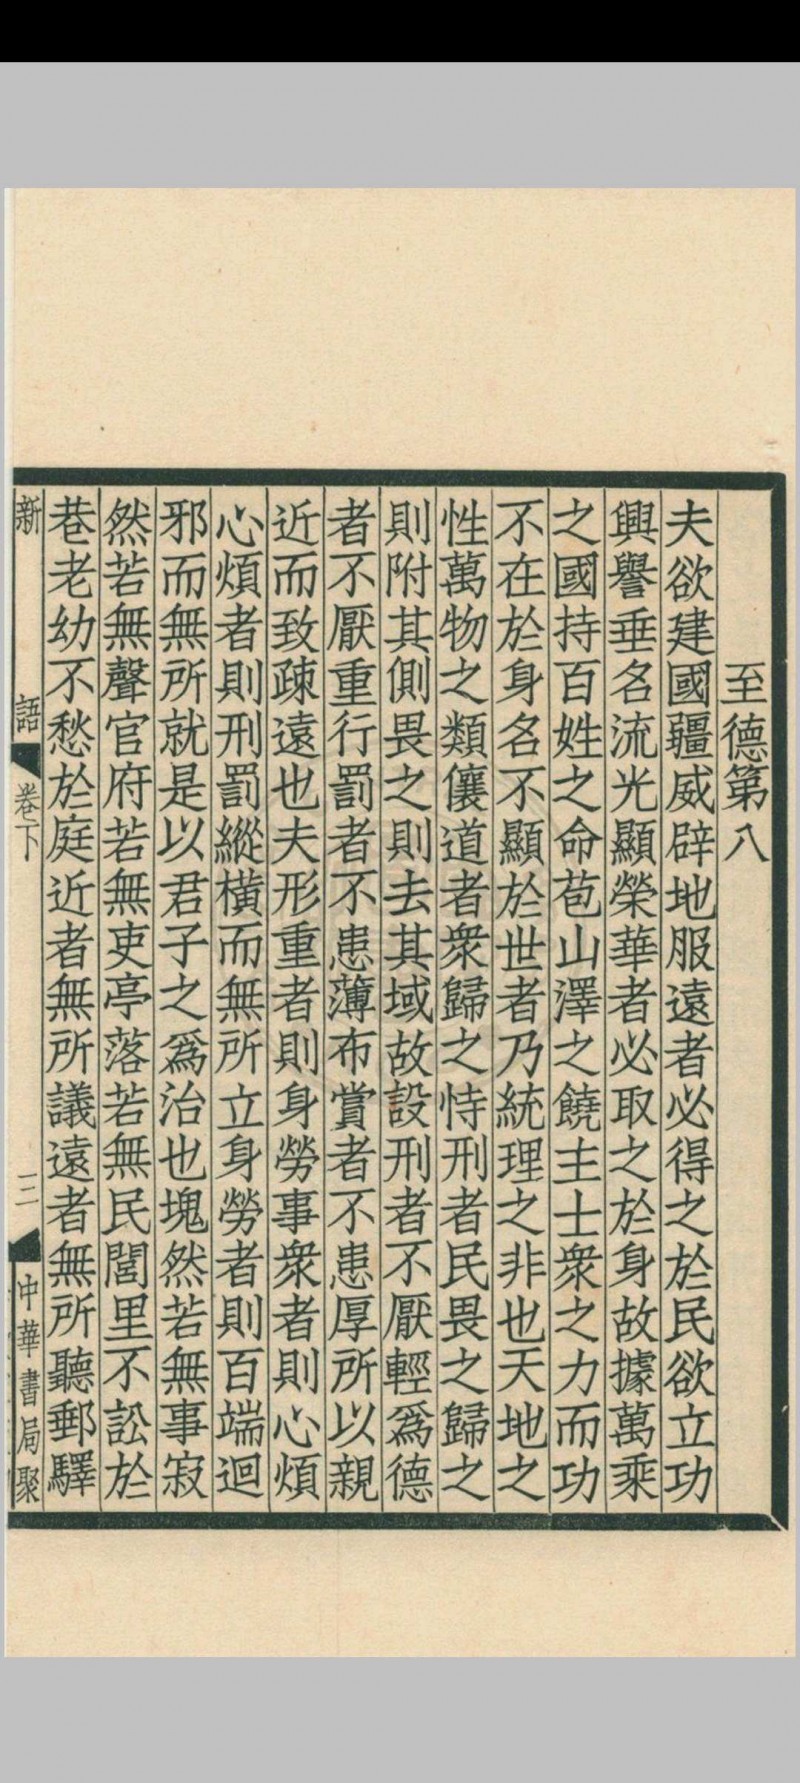 至德第八
夫欲建國疆威辟地服遠者必得之於民欲立功
興譽垂名流光顯榮華者必取之於身故據萬乘
之國持百姓之命苞山澤之饒主士衆之力而功
不在於身名不顯於世者乃統理之非也天地之
性萬物之類儴道者衆歸之恃刑者民畏之歸之
則附其側畏之則去其域故設刑者不厭輕爲德
者不厭重行罰者不患薄布賞者不患厚所以親
近而致疎遠也夫形重者則身勞事衆者則心煩
心煩者則刑罰縱橫而無所立身勞者則百端迴
邪而無所就是以君子之爲治也塊然若無事寂
然若無聲官府若無吏亭落若無民閭里不訟於
巷老幼不愁於庭近者無所議遠者無所聽郵驛
新語 卷下 三 中華書局聚